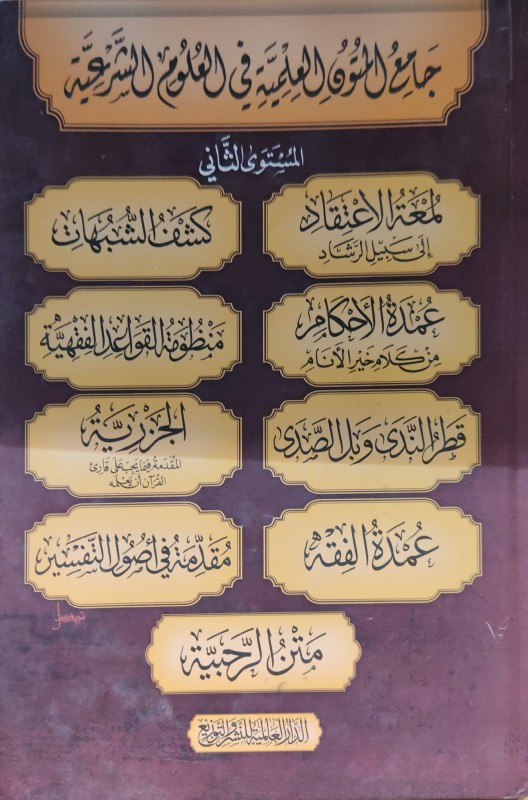 جَامِعُ المُتُونِ العِلْمِيَّةِ فِي العُلُومِ الشَّرْعِيَّةِ
المُسْتَوَى الثَّانِي
لُمْعَةُ الاعْتِقَادِ
إلى سَبِيلِ الرَّشَادِ
كَشْفُ الشُّبُهَاتِ
عُمْدَةُ الأَحْكَامِ
مِنْ كَلَامِ خَيْرِ الأَنَامِ
مَنْظُومَةُ القَوَاعِدِ الفِقْهِيَّةِ
قَطْرُ النَّدَى وَبَلُّ الصَّدَى
الجَزَرِيَّةُ
المُقَدِّمَةُ فِيمَا يَجِبُ عَلَى قَارِئِ
القُرْآنِ أَنْ يَعْلَمَهُ
عُمْدَةُ الفِقْهِ
مُقَدِّمَةٌ فِي أُصُولِ التَّفْسِيرِ
مَتْنُ الرَّحَبِيَّةِ
الدار العالمية للنشر والتوزيع